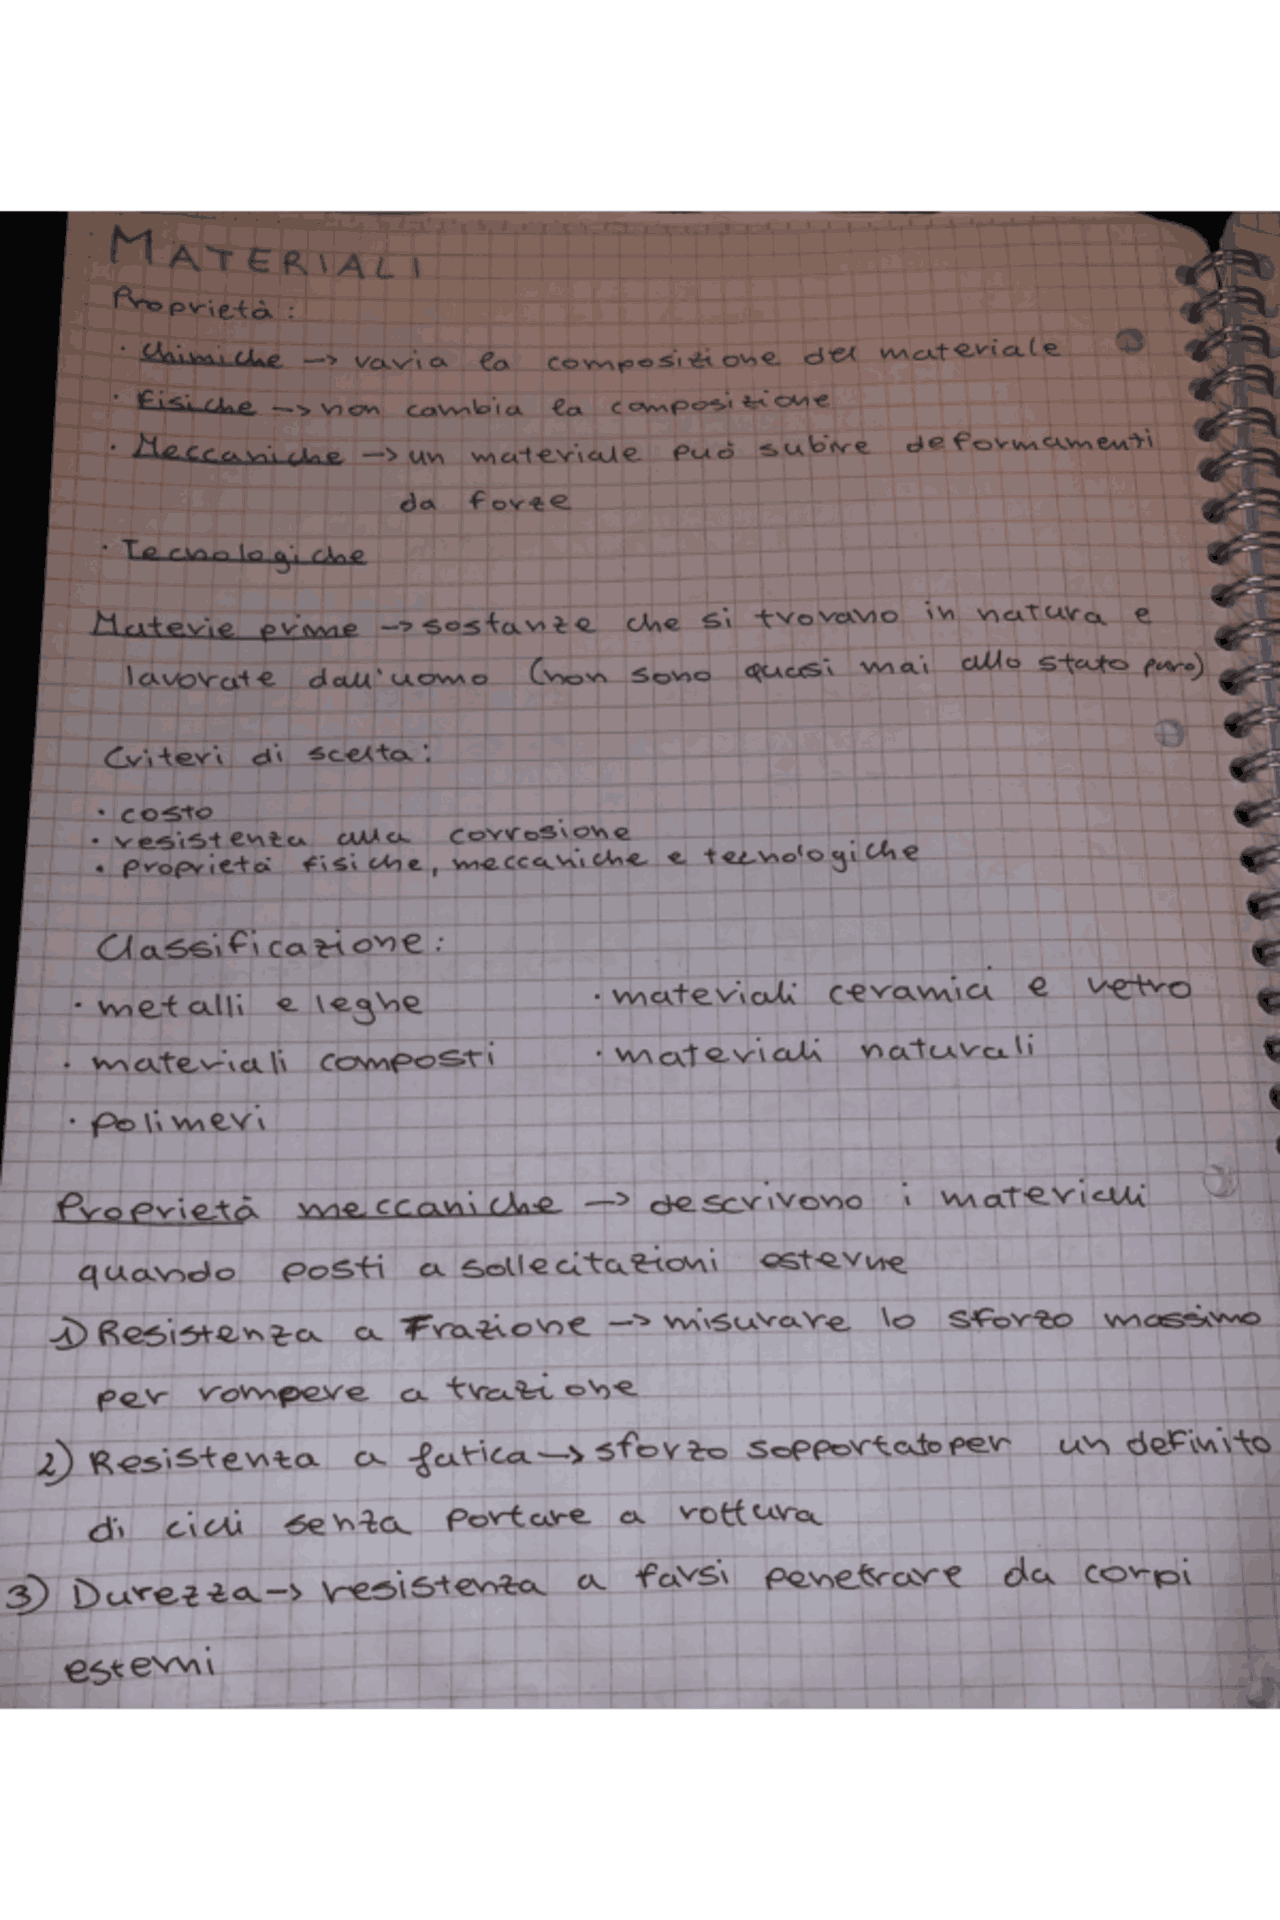 MATERIALI
Proprietà:
· Chimiche -> varia la composizione del materiale
· Fisiche -> non cambia la composizione
· Meccaniche -> un materiale può subire deformamenti
da forze
· Tecnologiche
Materie prime -> sostanze che si trovano in natura e
lavorate dall'uomo (non sono quasi mai allo stato puro)
Criteri di scelta:
· costo
· resistenza alla corrosione
· proprietà fisiche, meccaniche e tecnologiche
Classificazione:
· metalli e leghe · materiali ceramici e vetro
· materiali composti · materiali naturali
· polimeri
Proprietà meccaniche -> descrivono i materiali
quando posti a sollecitazioni esterne
1) Resistenza a Trazione -> misurare lo sforzo massimo
per rompere a trazione
2) Resistenza a fatica -> sforzo sopportato per un definito
di cicli senza portare a rottura
3) Durezza -> resistenza a farsi penetrare da corpi
esterni